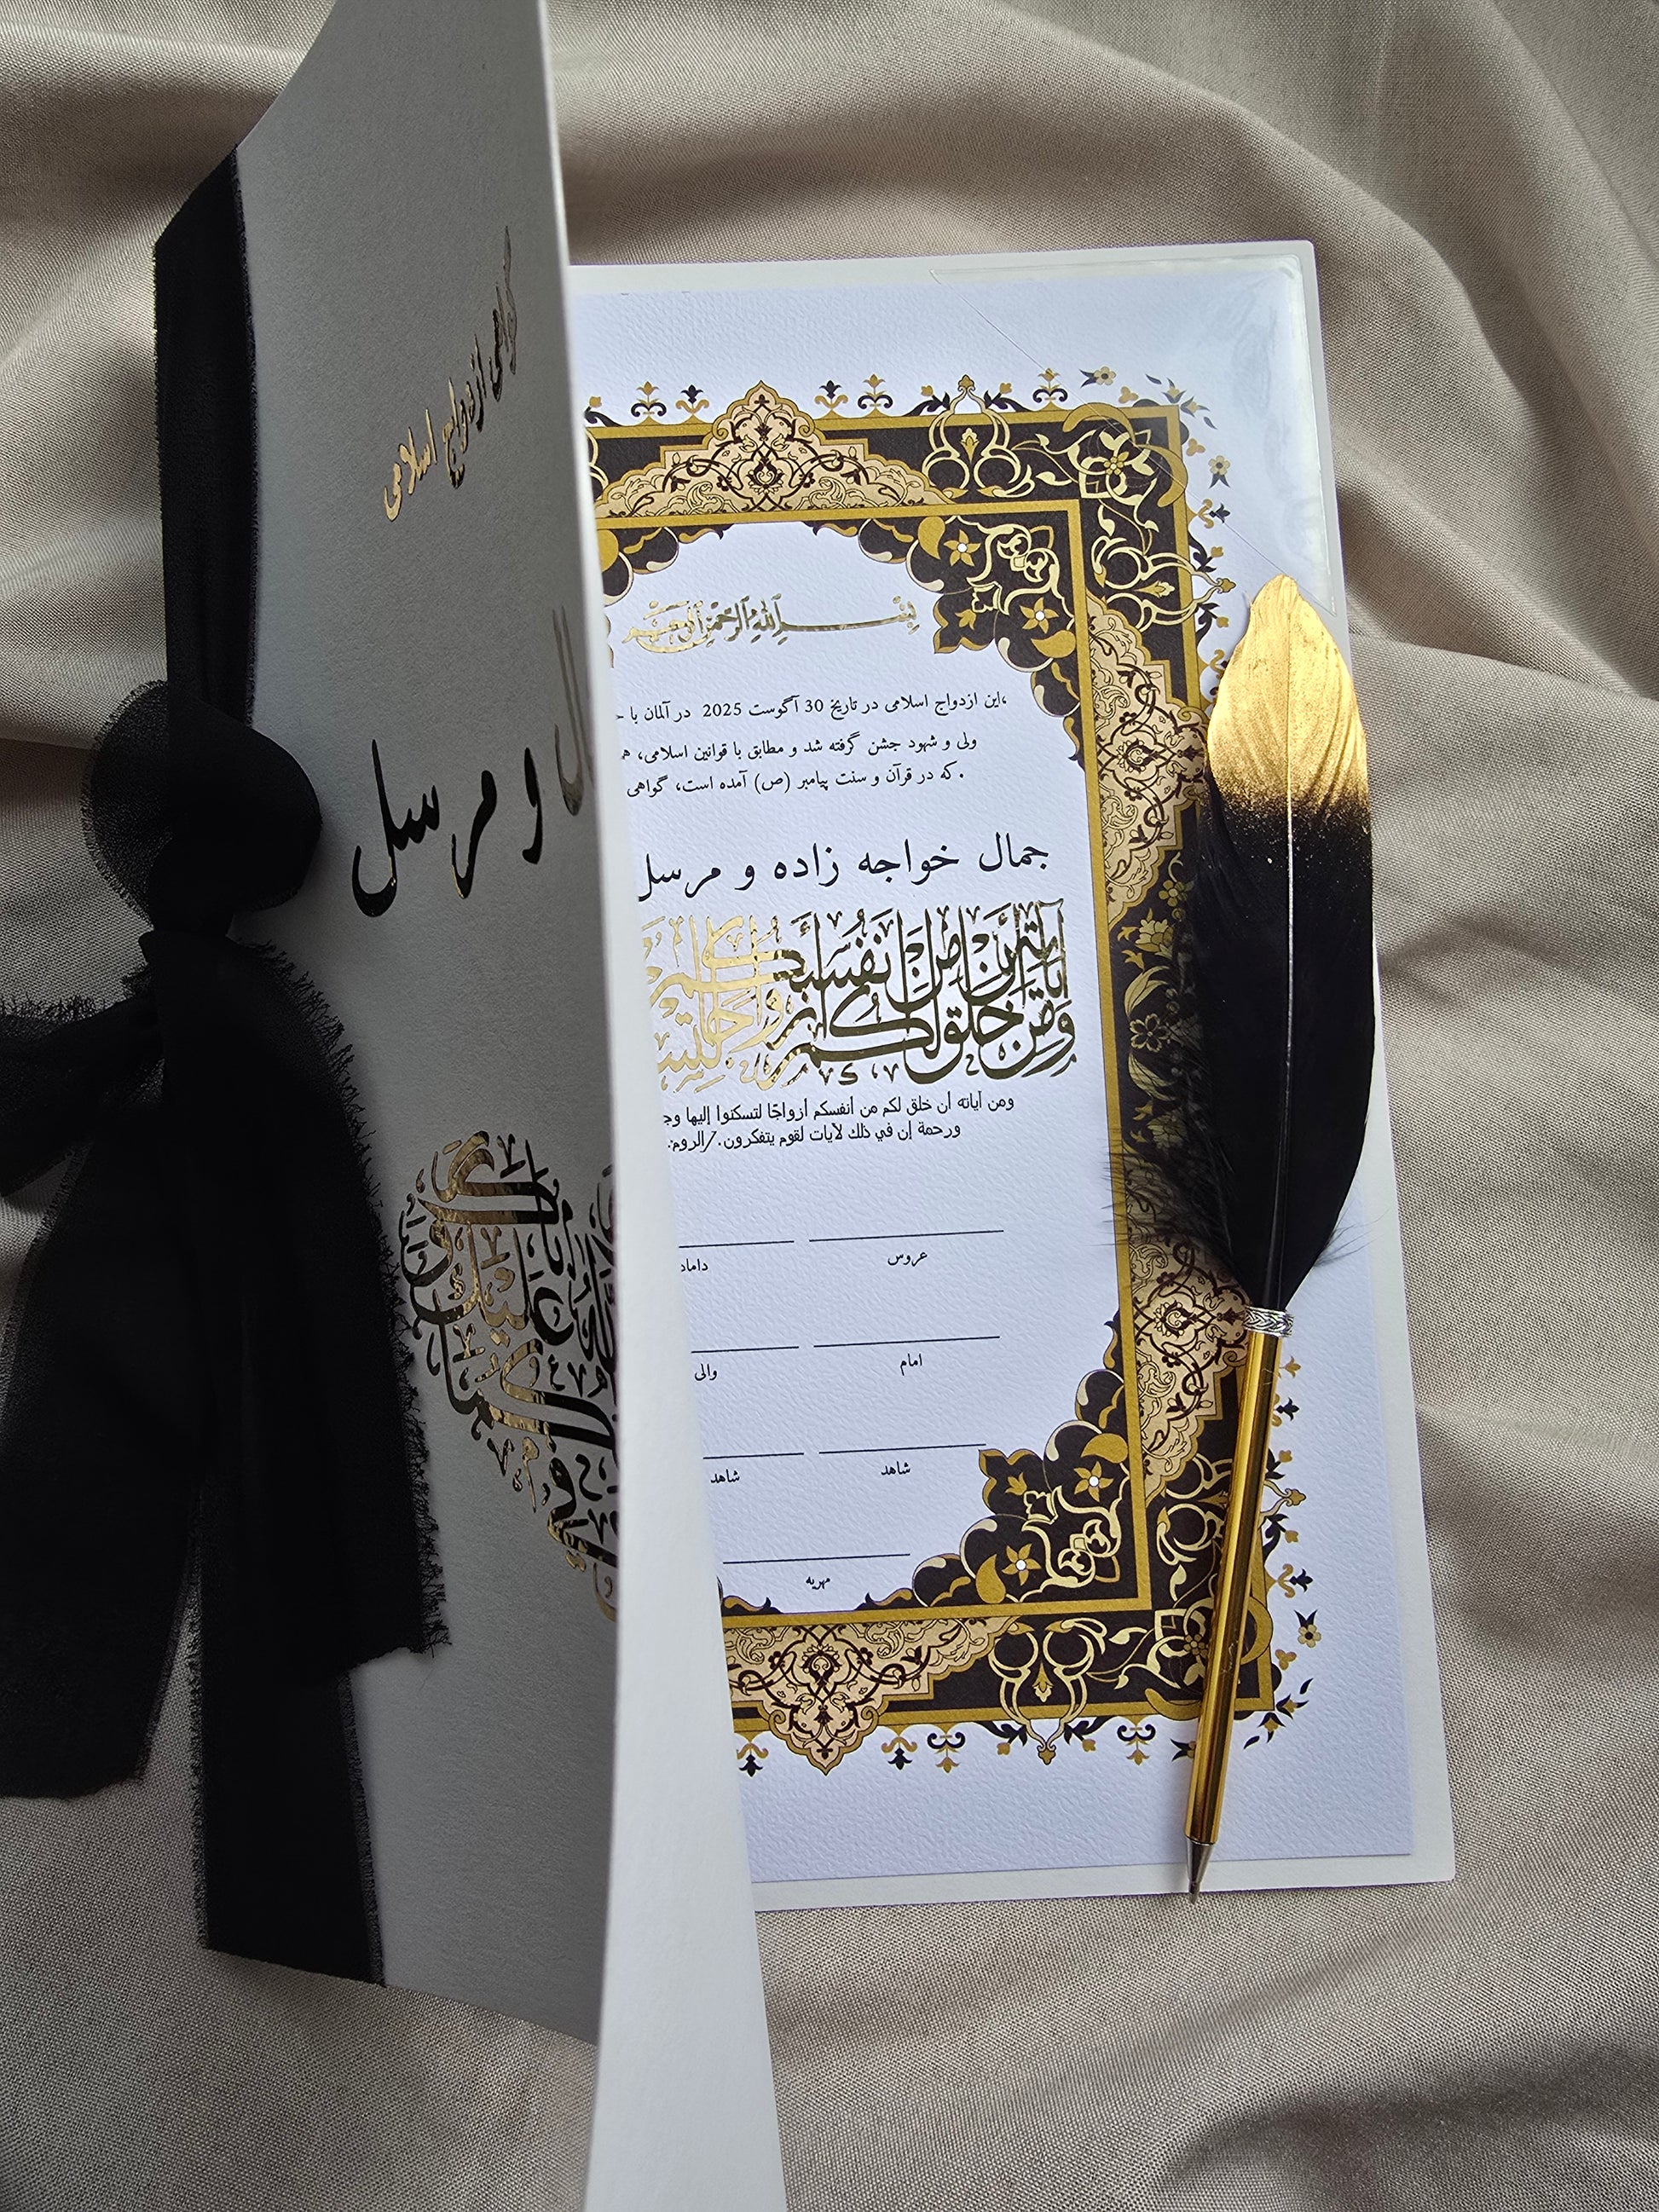 گواهی ازدواج اسلامی
و مرسل
بسم الله الرحمن الرحيم
این ازدواج اسلامی در تاریخ 30 آگوست 2025 در آلمان با
ولی و شهود جشن گرفته شد و مطابق با قوانین اسلامی،
که در قرآن و سنت پیامبر (ص) آمده است، گواهی.
جمال خواجه زاده و مرسل
ومن آياته أن خلق لكم من أنفسكم أزواجا
ومن آياته أن خلق لكم من أنفسكم أزواجًا لتسكنوا إليها
ورحمة إن في ذلك لآيات لقوم يتفكرون./الروم:
عروس
داماد
امام
والی
شاهد
شاهد
مهریه